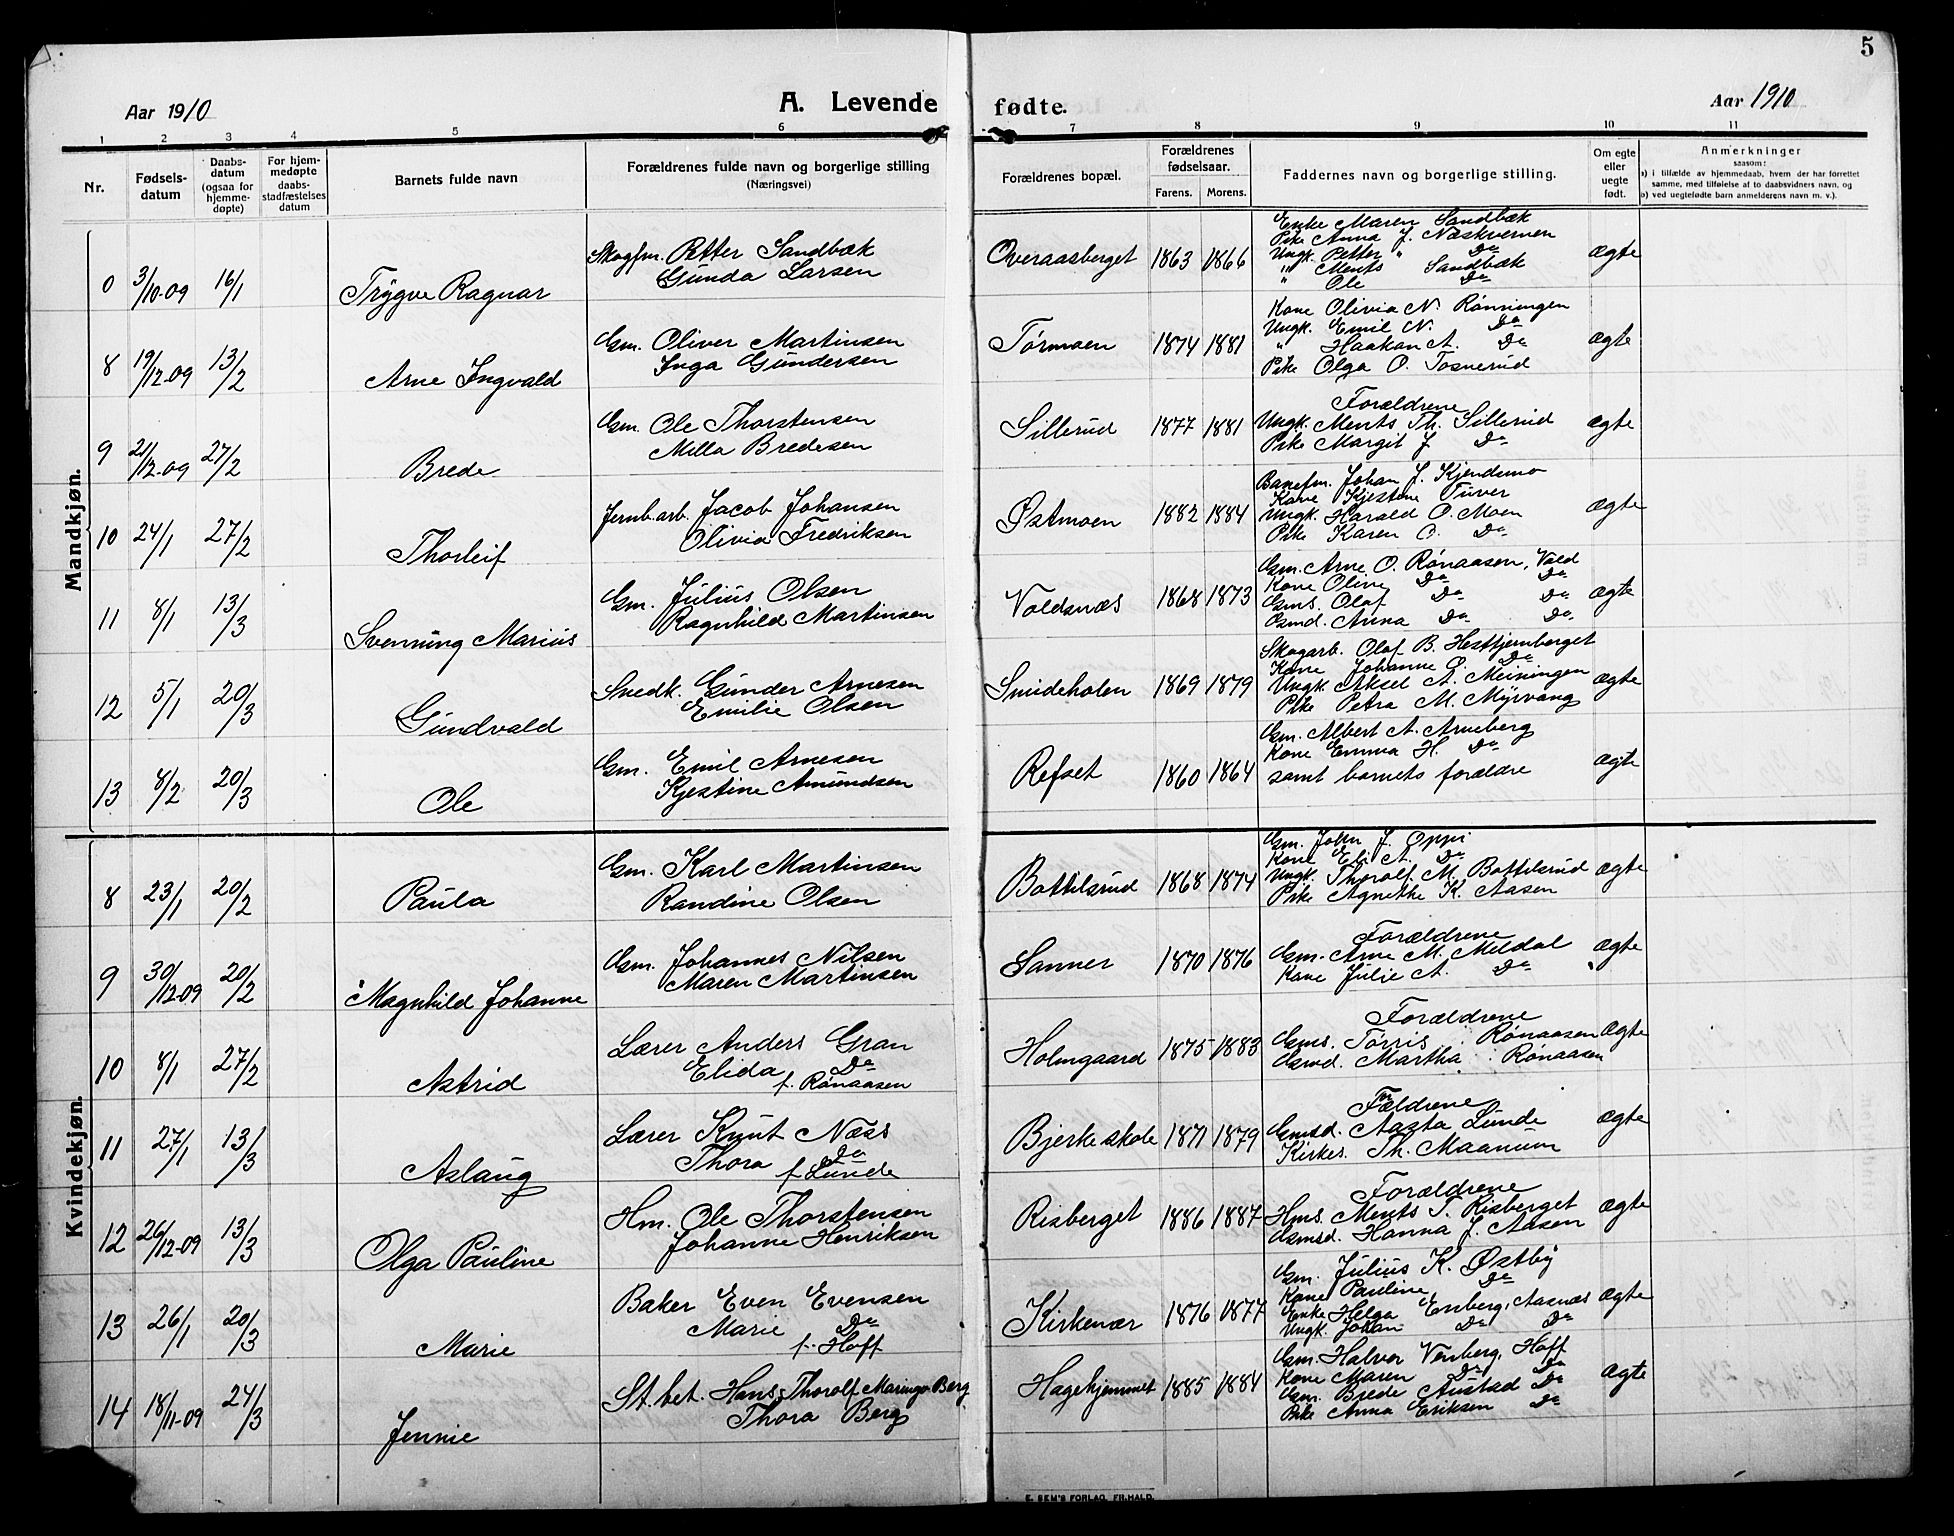 5
Aar 1910
A. Levende fødte.
Aar 1910
1 2 3 4 5 6 7 8 9 10 11
Nr.
Fødsels-
datum
Daabs-
datum
(ogsaa for
hjemme-
døpte)
For hjem-
medøpte
daabs-
stadfæstelses
datum
Barnets fulde navn
Forældrenes fulde navn og borgerlige stilling
(Næringsvei)
Forældrenes bopæl.
Forældrenes
fødselsaar.
Farens. Morens.
Faddernes navn og borgerlige stilling.
Om egte
eller
uegte
født.
Anmerkninger
saasom:
a) i tilfælde av hjemmedaab, hvem der har forrettet
samme, med tilføielse af to daabsvidners navn, og
b) ved uegtefødte barn anmelderens navn m. v.).
Mandkjøn.
0 3/10-09 16/1 Trygve Ragnar
Skogfm. Petter Sandbæk
Gunda Larsen
Overaasberget 1863 1866
Enke Maren Sandbæk
Pike Anna J. Næskvernen
Ungk. Petter " Do
" Ments Sandbæk
" Ole Do
ægte
8 19/12-09 13/2 Arne Ingvald
Gm. Oliver Martinsen
Inga Gundersen
Tørmoen 1874 1881
Kone Olivia N. Rønningen
Ungk. Emil N. Do
" Haakon A. Do
Pike Olga O. Tosnerud
ægte
9 21/12-09 27/2 Brede
Gm. Ole Thorstensen
Milla Bredesen
Sillerud 1877 1881
Forældrene
Ungk. Ments Th. Sillerud
Pike Margit J. Do
ægte
10 24/1 27/2 Thorleif
Jernb.arb. Jacob Johansen
Olivia Fredriksen
Østmoen 1882 1884
Banefm. Johan J. Kjendsmo
Kone Kjestine Tuver
Ungk. Harald O. Moen
Pike Karen O. Do
ægte
11 8/1 13/3 Svenning Marius
Gm. Julius Olsen
Ragnhild Martinsen
Voldsnæs 1868 1873
Gm. Arne O. Rønaasen, Vold
Kone Oline Do Do
Gms. Olaf Do Do
Gmd. Anna Do Do
ægte
12 5/1 20/3 Gundvald
Snedk. Gunder Arnesen
Emilie Olsen
Smideholen 1869 1879
Skogarb. Olaf B. Hesttjernberget
Kone Johanne O. Do
Ungk. Aksel A. Meiningen
Pike Petra M. Myrvang
ægte
13 8/2 20/3 Ole
Gm. Emil Arnesen
Kjestine Amundsen
Refset 1860 1864
Gm. Albert A. Arneberg
Kone Emma H. Do
samt barnets forældre
ægte
Kvindekjøn.
8 23/1 20/2 Paula
Gm. Karl Martinsen
Randine Olsen
Bottilsrud 1868 1874
Gm. John J. Oppi
Kone Eli A. Do
Ungk. Thorolf M. Bottilsrud
Pike Agnethe K. Aasen
ægte
9 30/12-09 20/2 Magnhild Johanne
Gm. Johannes Nilsen
Maren Martinsen
Sanner 1870 1876
Forældrene
Gm. Arne M. Meldal
Kone Julie A. Do
ægte
10 8/1 27/2 Astrid
Lærer Anders Gran
Elida Do
f. Rønaasen
Holmgaard 1875 1883
Forældrene
Gms. Tørris Rønaasen
Gmd. Martha Rønaasen
ægte
11 27/1 13/3 Aslaug
Lærer Knut Næss
Thora Do
f. Lunde
Bjerke skole 1871 1879
Forældrene
Gmsd. Aasta Lunde
Kirkes. Th. Maanum
ægte
12 26/12-09 13/3 Olga Pauline
Hm. Ole Thorstensen
Johanne Henriksen
Risberget 1886 1887
Forældrene
Hms. Ments T. Risberget
Gmsd. Hanna J. Aasen
ægte
13 26/1 20/3 Marie
Baker Even Evensen
Marie Do
f. Hoff
Kirkenær 1876 1877
Gm. Julius K. Østby
Kone Pauline Do
Enke Helga Enberg, Aasnæs
Ungk. Johan Do Do
ægte
14 18/11-09 24/3 Jennie
St.bet. Hans Thorolf Maringo Berg
Thora Berg
Hagehjemmet 1885 1884
Gm. Halvor Venberg, Hoff
Kone Maren Do Do
Gm. Brede Austad Do
Pike Anna Eriksen Do
ægte
E. SEM'S FORLAG. FR.HALD.